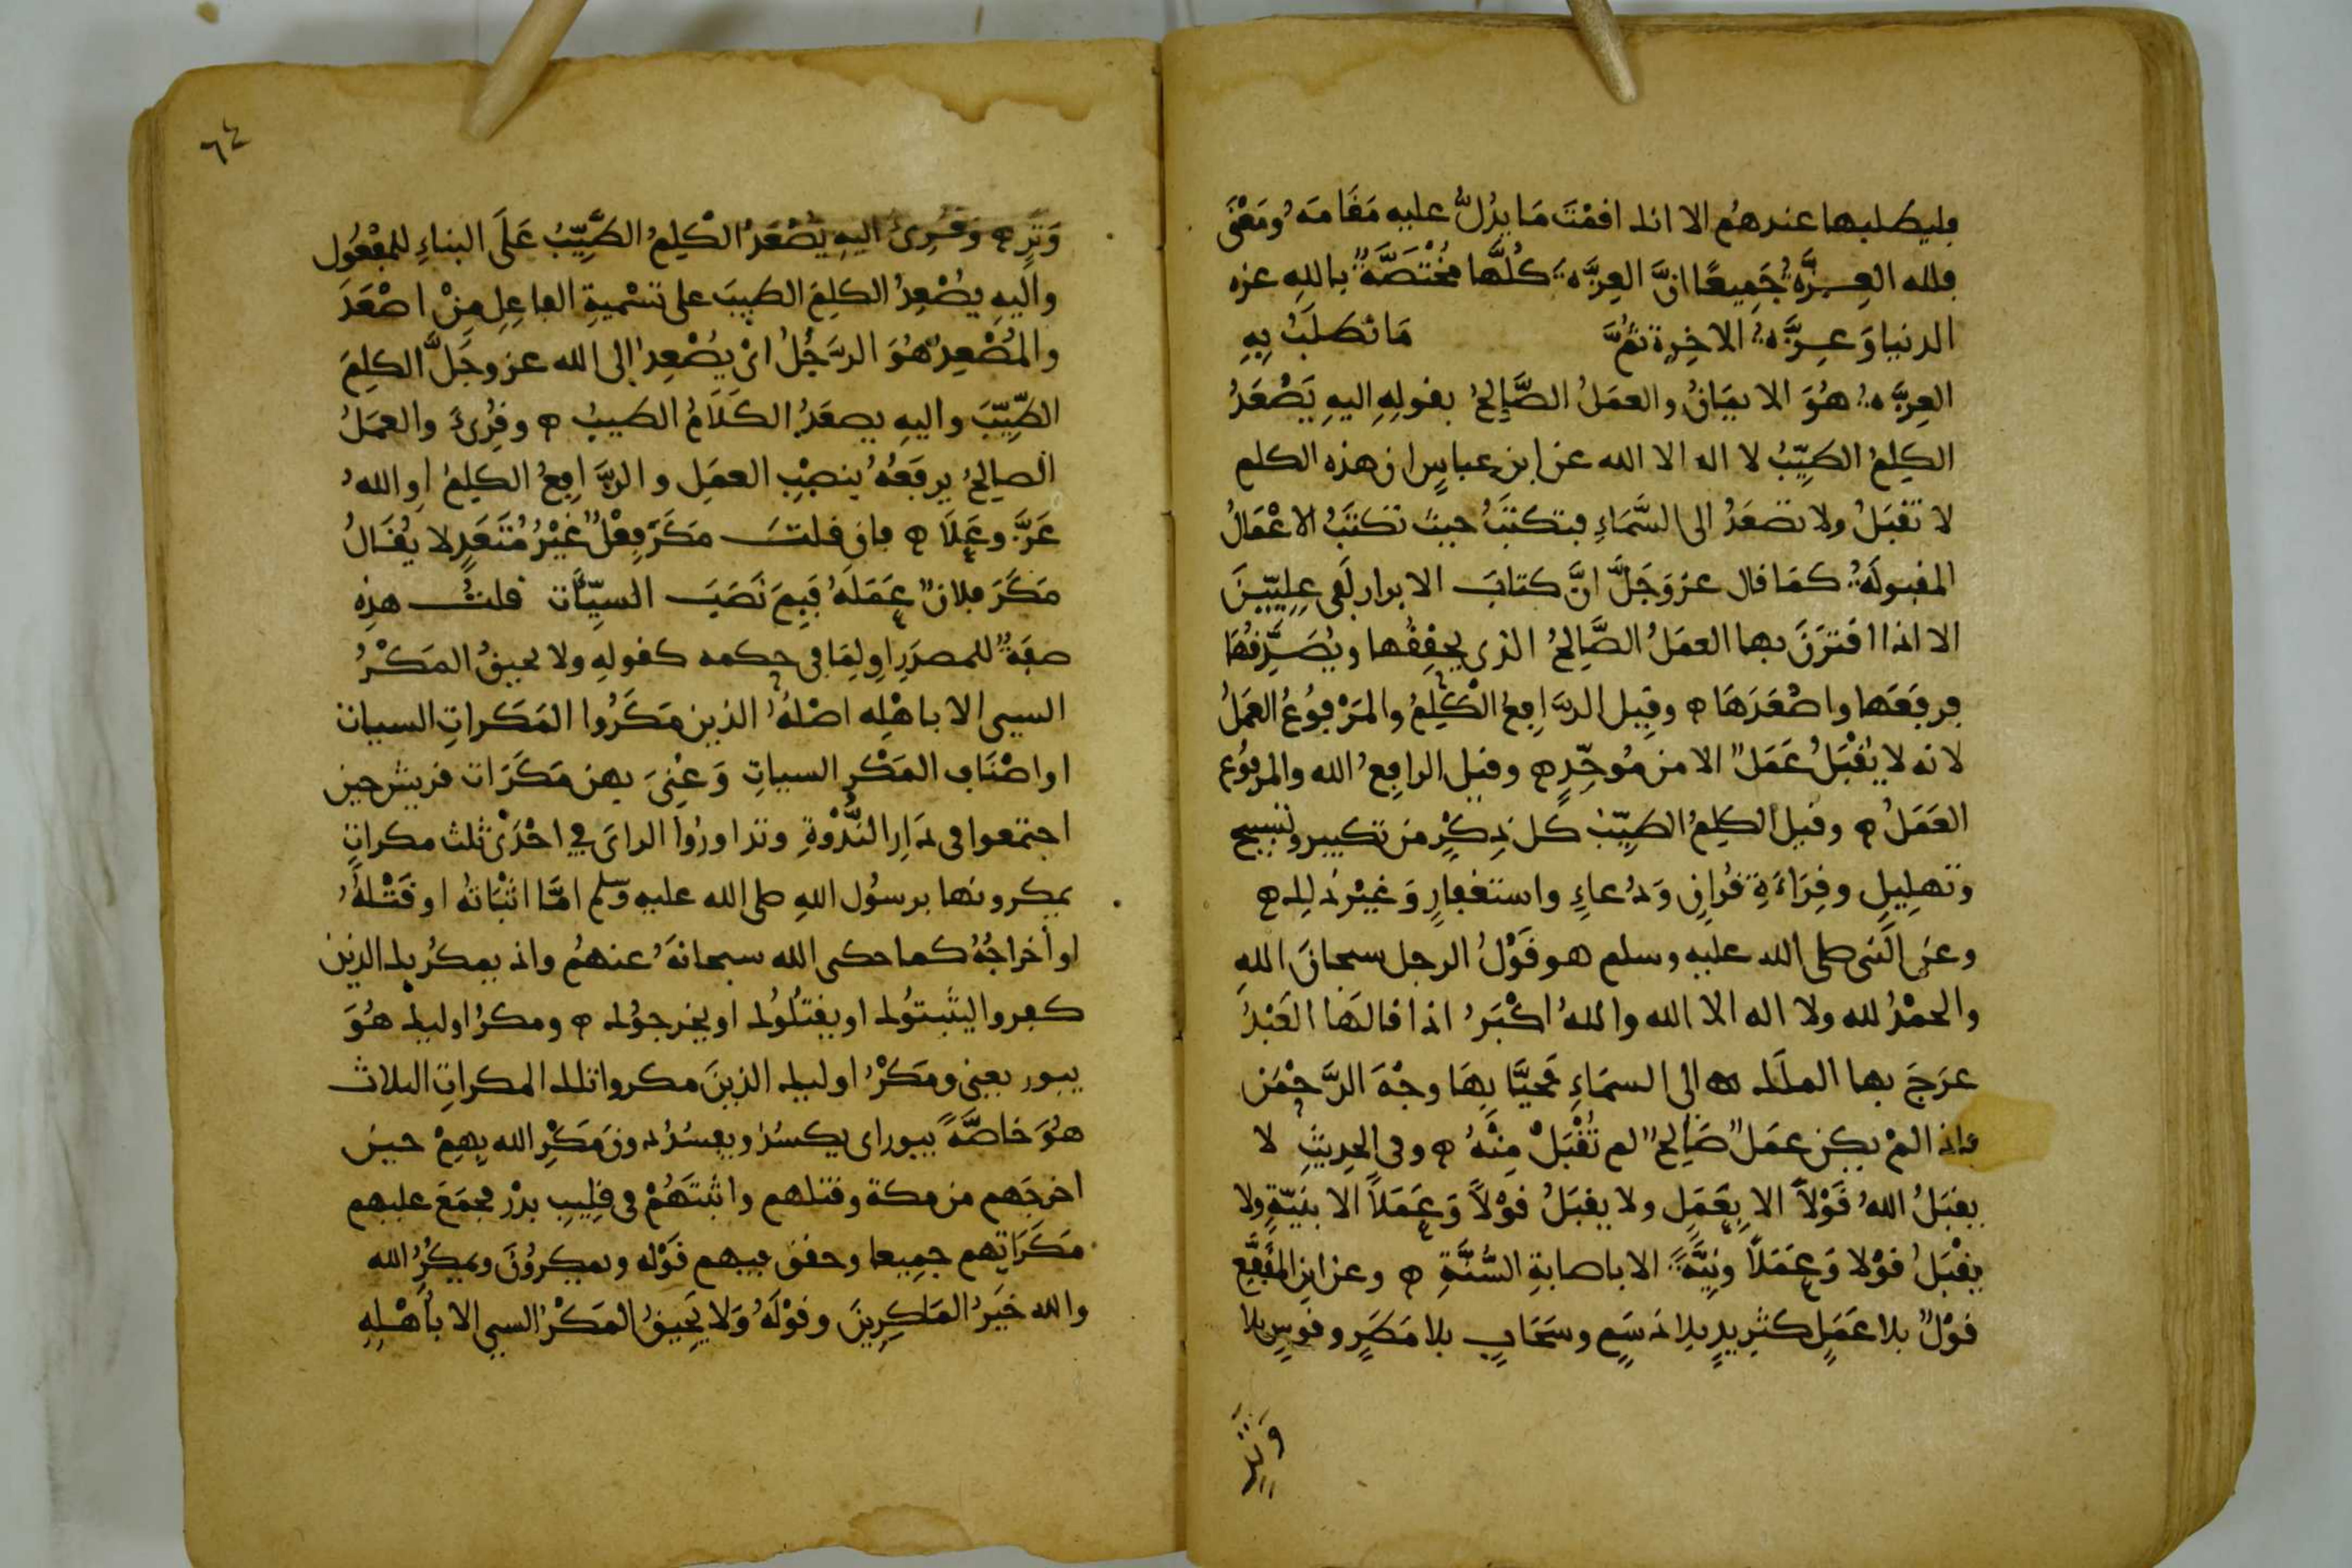 فليطلبها عندهُم الا انك اقمْتَ مَا يدُلُّ عليه مَقَامَهُ وَمَعْنَى
فلله العِزَّةُ جَمِيعًا انَّ العِزَّةَ كُلَّهَا مُخْتَصَّةٌ باللهِ عزة
الدنيا وَعِزَّةُ الاخِرةِ ثمَّ مَا تطلَبُ بِهِ
العِزَّةُ هُوَ الايمَانُ والعمَلُ الصَّالِحُ بقولِهِ اليهِ يَصْعَدُ
الكلِمُ الطيِّبُ لا اله الا الله عن ابن عباسٍ ان هذه الكلم
لا تقْبَلُ ولا تصعَدُ الى السَّمَاءِ فتكتَبُ حيث تكتَبُ الاعْمَالُ
المقبولَةُ كمَا قال عز وَجَلَّ انَّ كتابَ الابرار لَفى عِلِيّينَ
الا اذا اقترَنَ بها العمَلُ الصَّالِحُ الذى يحقِقُها ويُصَدِّقُهَا
فرفَعَها واصْعَدَهَا ه وقِيل الرَّافِعُ الْكَلِمُ والمَرْفوُعُ العمَلُ
لانه لا يُقْبَلُ عَمَلٌ الا من مُوحِّدٍ ه وقيل الرافِعُ الله والمرفوُع
العَمَلُ ه وقيل الكلِمُ الطيِّبُ كل ذِكْرٍ من تكبير وتسبيح
وتهلِيلٍ وقِرَاءَةِ قُرانٍ وَدُعاءٍ واستغفارٍ وَغيْرِ ذلِك ه
وعن النَّبى صلى الله عليه وسلم هو قَوْلُ الرجل سبحانَ اللهِ
والحمْدُ لله ولا اله الا الله واللهُ اكْبَرُ اذا قالهَا العَبْدُ
عرَجَ بها الملَك الى السمَاءِ فحيَّا بِهَا وجْهَ الرَّحْمَن
فاذا لمْ يكن عمَلٌ صَالحٌ لم تُقْبَلْ مِنْهُ ه وفى الحدِيثِ لا
يقبَلُ اللهُ قَوْلًا الا بِعَمَلٍ ولا يقبَلُ قوْلًا وَعَمَلًا الا بنيّةٍ ولا
يقْبَلُ قوْلا وَعَمَلًا ونِيَّةً الا باصابةِ السُّنَّةِ ه وعن ابن المقَفَّعِ
قوْلٌ بلا عَمَلٍ كثرِيدٍ بلا دَسَمٍ وسَحَابٍ بلا مَطَرٍ وقوسٍ بلا
وَتَرٍ
٦٤
وَتَرٍ ه وَقُرِئَ اليهِ يُصْعَدُ الْكلِمُ الطَّيِّبُ عَلَى البناءِ للمفْعُول
واليهِ يُصْعِدُ الكلِمَ الطيبَ على تسْميةِ الفاعِلِ مِنْ اصْعَدَ
والمُصْعِدُ هُوَ الرَّجُلُ اىْ يُصْعِدُ إلى الله عز وجَلَّ الكلِمَ
الطِّيِّبَ واليهِ يصعَدُ الكَلَامُ الطيبُ ه وقُرِئَ والعمَلُ
الصالِحُ يرفَعُهُ بنصْبِ العمَلِ والرَّافِعُ الكلِمُ اوِ اللهُ
عَزَّ وعَلَا ه فان قلتَ مَكَرَ فِعْلٌ غَيْرُ مُتَعَدٍ لا يُقَالُ
مَكَرَ فلانٌ عَمَلَهُ فَبِمَ نَصَبَ السيِّئَاتِ قلتُ هذِه
صفَةٌ للمصدَرِ او لِمَا فى حكمه كقولِهِ ولا يحيقُ المَكْرُ
السيى الا باهْلِه اصْلهُ الذين مَكَرُوا المَكَراتِ السيات
او اصْنَاف المَكْرِ السياتِ وَعُنِىَ بهن مَكَرَات قريش حين
اجتمعوا فى دَارِ النُّدْوَةِ وتداورُوا الراىَ في احْدَىْ ثلث مكراتٍ
يمكرونها برسُول اللهِ صلى الله عليه وسلم امَّا اثْبَاتُه او قَتْلُهُ
او أخراجُهُ كما حكى الله سبحانهَ عنهُم واذ يمكرُ بك الذين
كفروا ليثبتوُك او يقتُلُوك او يخرجوُك ه ومكرُ اوليك هُوَ
يبور يعنى ومَكْرُ اوليك الذينَ مكروا تلك المكراتِ الثلاث
هُوَ خاصَّةً يبور اى يكسُدُ ويفسُدُ دون مَكْرِ الله بِهِمْ حين
اخرجَهم من مكة وقتلهم واثبتَهُمْ فى قلِيبِ بدْر فجمَعَ عليهم
مَكَرَاتِهم جمِيعا وحقق فيهم قَوْله ويمكروُنَ ويمكُرُ الله
والله خيَرُ المَاكِرِينَ وقوْلَهُ وَلا يَحِيقُ المَكْرُ السيى الا بأهْلِهِ